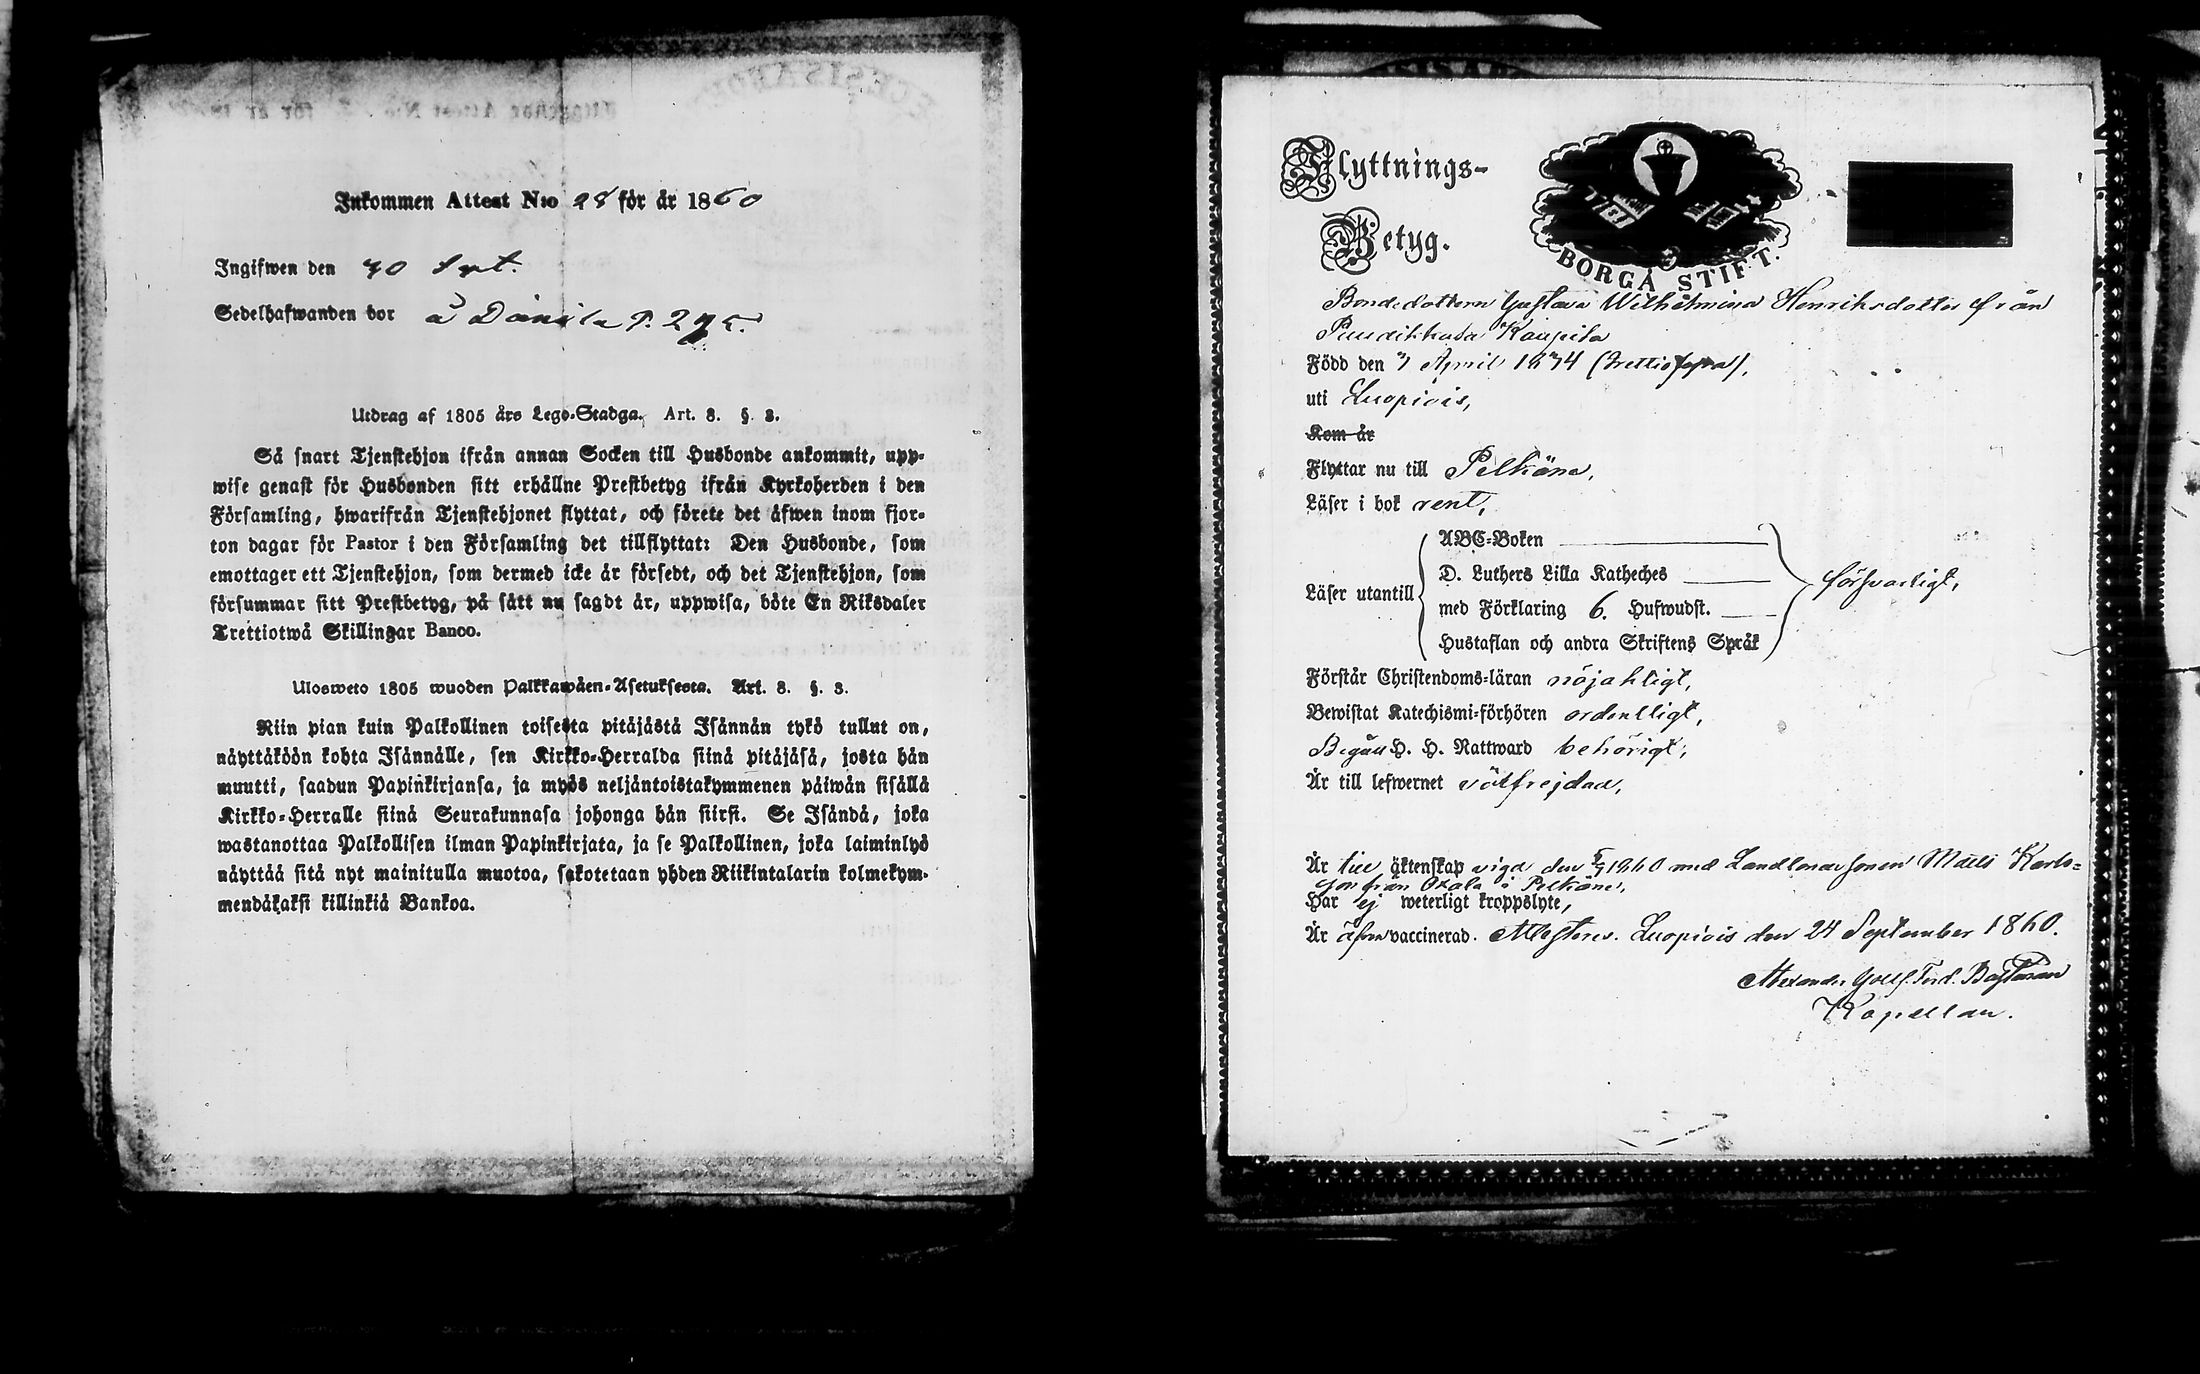 Inkommen Attest N:o 28 för år 1860
Ingifwen den 30 Sept.
Sedelhafwanden bor å Dänila P. 275.
Utdrag af 1805 års Lego-Stadga. Art. 8. §. 3.
Så snart Tjenstehjon ifrån annan Socken till Husbonde ankommit, upp-
wise genast för Husbonden sitt erhållne Prestbetyg ifrån Kyrkoherden i den
Församling, hwarifrån Tjenstehjonet flyttat, och förete det äfwen inom fjor-
ton dagar för Pastor i den Församling det tillflyttat: Den Husbonde, som
emottager ett Tjenstehjon, som dermed icke är försedt, och det Tjenstehjon, som
försummar sitt Prestbetyg, på sätt nu sagdt är, uppwisa, böte En Riksdaler
Trettiotwå Skillingar Banco.
Ulosweto 1805 wuoden Palkkawäen-Asetuksesta. Art. 8. §. 3.
Niin pian kuin Palkollinen toisesta pitäjästä Isännän tykö tullut on,
näyttäköön kohta Isännälle, sen Kirkko-Herralda siinä pitäjäsä, josta hän
muutti, saadun Papinkirjansa, ja myös neljäntoistakymmenen päiwän sisällä
Kirkko-Herralle siinä Seurakunnasa johonga hän siirsi. Se Isändä, joka
wastanottaa Palkollisen ilman Papinkirjata, ja se Palkollinen, joka laiminlyö
näyttää sitä nyt mainitulla muotoa, sakotetaan yhden Riikintalarin kolmekym-
mendäkaksi killinkiä Bankoa.
Flyttnings-
Betyg.
BORGÅ STIFT.
Bondedottern Gustava Wilhelmina Henriksdotter från
Puudikkala Kaupila
Född den 7 April 1834 (trettiofyra),
uti Luopiois,
Kom år
Flyttar nu till Pelkäne,
Läser i bok rent,
Läser utantill
ABC-Boken
D. Luthers Lilla Katheches
med Förklaring 6. Hufwudst.
Hustaflan och andra Skriftens Språk
försvarligt,
Förstår Christendoms-läran nöjaktigt,
Bewistat Katechismi-förhören ordentligt,
Begått H. H. Nattward behörigt,
Är till lefwernet välfrejdad,
Är till äktenskap vigd den 5/9 1860 med Landbondesonen Matts Karls-
son från Okala i Pelkäne,
Har ej weterligt kroppslyte,
Är äfven vaccinerad. Attesteras. Luopiois den 24 September 1860.
Alexander Gust. Ferd.
Kapellan.